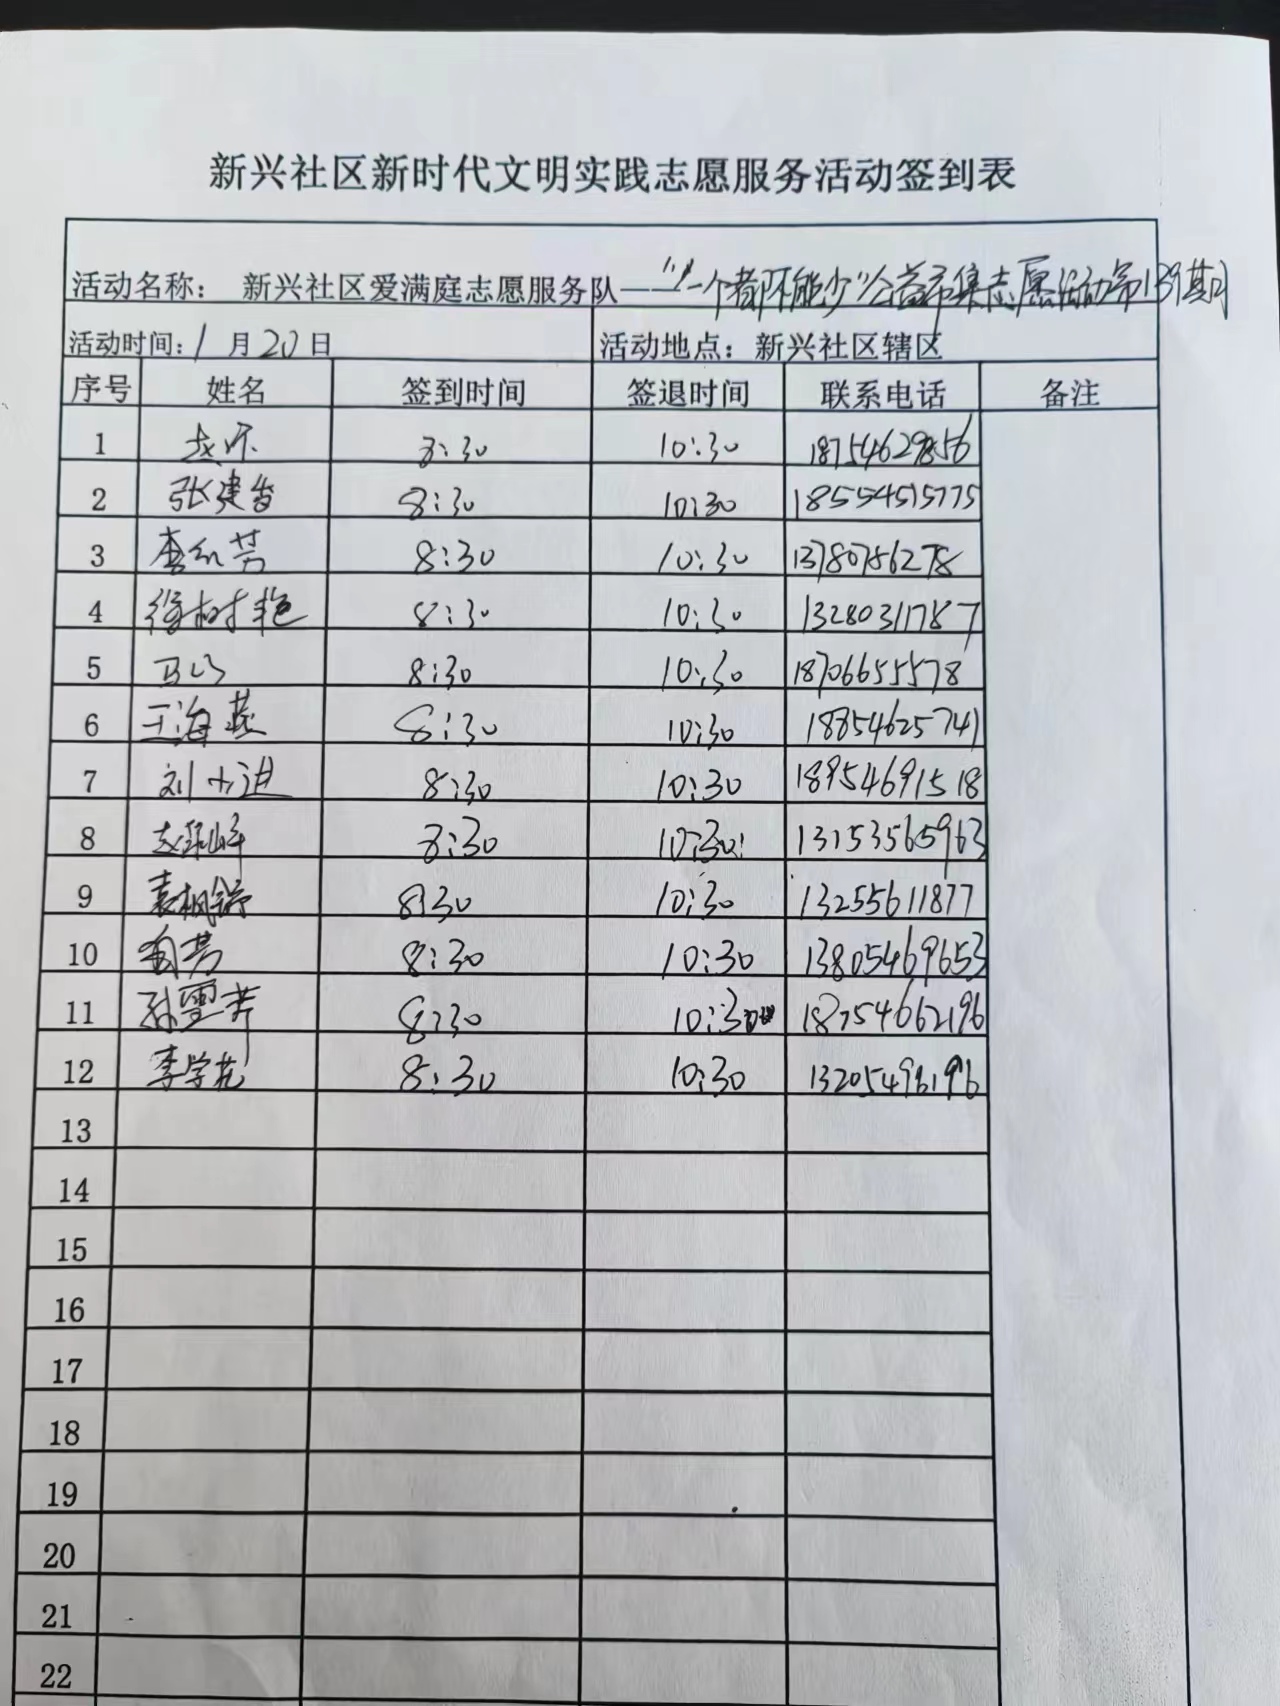 新兴社区新时代文明实践志愿服务活动签到表
活动名称： 新兴社区爱满庭志愿服务队——"一个都不能少"公益市集志愿活动第139期
活动时间：1月20日 活动地点：新兴社区辖区
序号 姓名 签到时间 签退时间 联系电话 备注
1 8:30 10:30 18754629856
2 张建 8:30 10:30 18554515775
3 李红芳 8:30 10:30 13780756278
4 徐树艳 8:30 10:30 13280311787
5 马 8:30 10:30 18706655578
6 王海燕 8:30 10:30 18854625741
7 刘小进 8:30 10:30 18954691518
8 8:30 10:30 13153565963
9 袁枫舒 8:30 10:30 13255611877
10 8:30 10:30 13805469653
11 孙雪 8:30 10:30 18754662196
12 李学花 8:30 10:30 13205496196
13
14
15
16
17
18
19
20
21
22